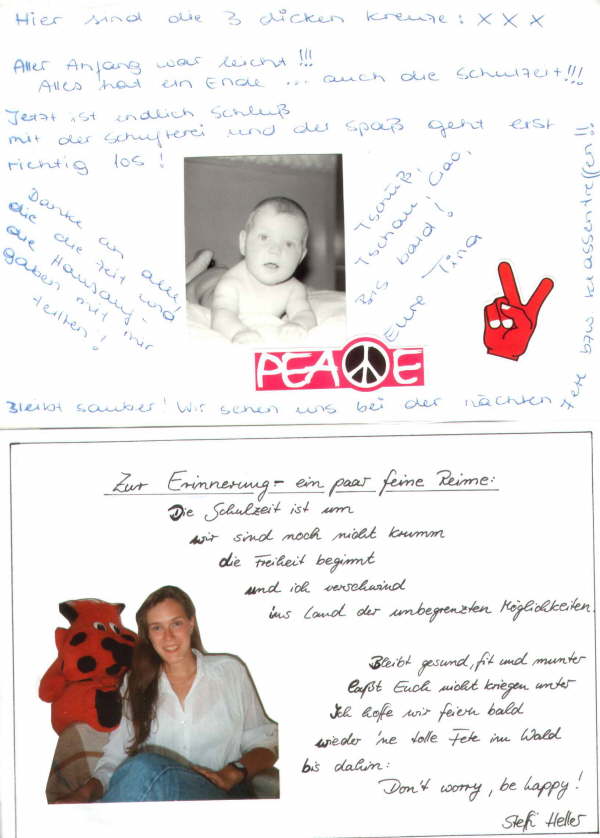 Hier sind die 3 dicken Kreuze: X X X
Aller Anfang war leicht!!!
Alles hat ein Ende ... auch die Schulzeit!!!
Jetzt ist endlich Schluß
mit der Schufterei und der Spaß geht erst
richtig los!
Danke an alle,
die die Zeit und
die Hausauf-
gaben mit mir
teilten!
Tschüß,
Tschau, Ciao,
Bis bald!
Eure Tina
PEACE
Bleibt sauber! Wir sehen uns bei der nächsten
Fete bzw Klassentreffen!!
Zur Erinnerung - ein paar feine Reime:
Die Schulzeit ist um
wir sind noch nicht krumm
die Freiheit beginnt
und ich verschwind
ins Land der unbegrenzten Möglichkeiten.
Bleibt gesund, fit und munter
laßt Euch nicht kriegen unter
Ich hoffe wir feiern bald
wieder 'ne tolle Fete im Wald
bis dahin:
Don't worry, be happy!
Steffi Heller